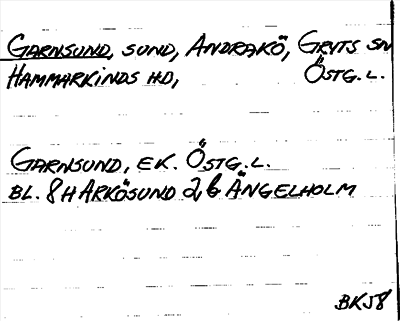 GARNSUND, SUND, ANDRAKÖ, GRYTS SN
HAMMARKINDS HD, ÖSTG. L.
GARNSUND, EK. ÖSTG. L.
BL. 8H ARKÖSUND 2, 6 ÄNGELHOLM
BKJ8